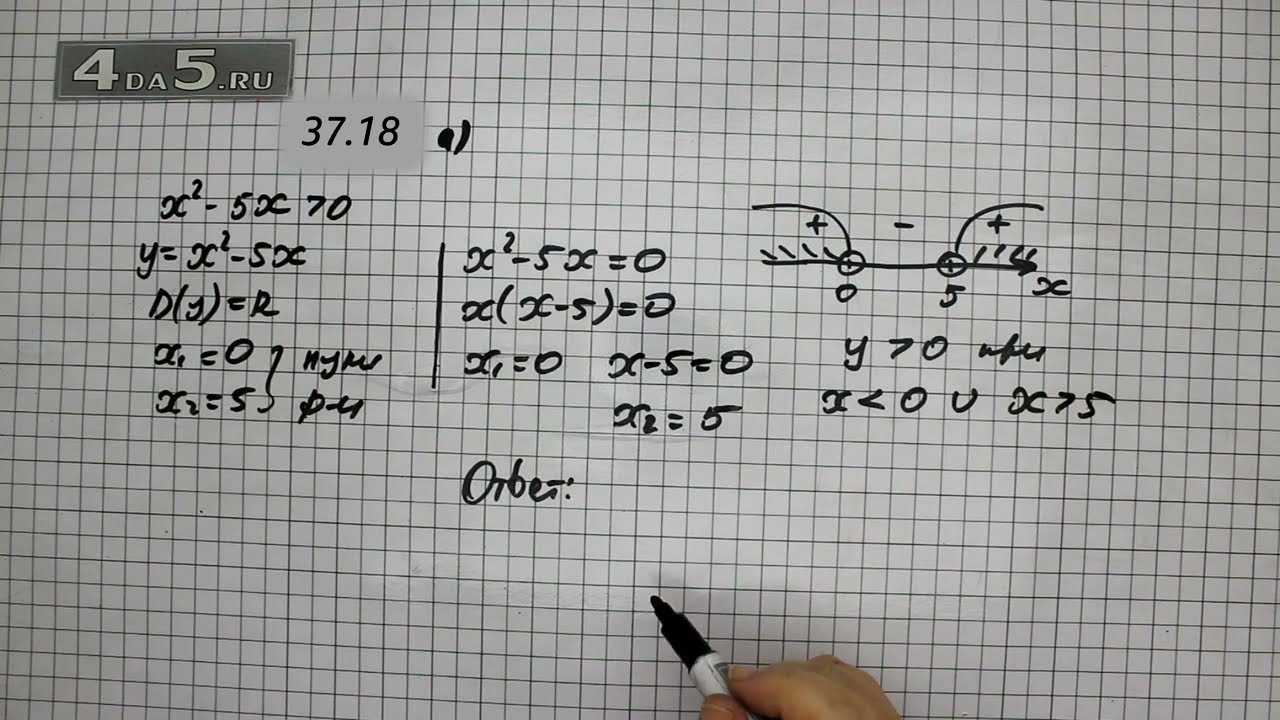 4DA5.RU
37.18 а)
x² - 5x > 0
y = x² - 5x
D(y) = R
x₁ = 0 } нули
x₂ = 5 } ф-ии
x² - 5x = 0
x(x - 5) = 0
x₁ = 0 x - 5 = 0
x₂ = 5
+ - +
0 5 x
y > 0 при
x < 0 ∪ x > 5
Ответ: